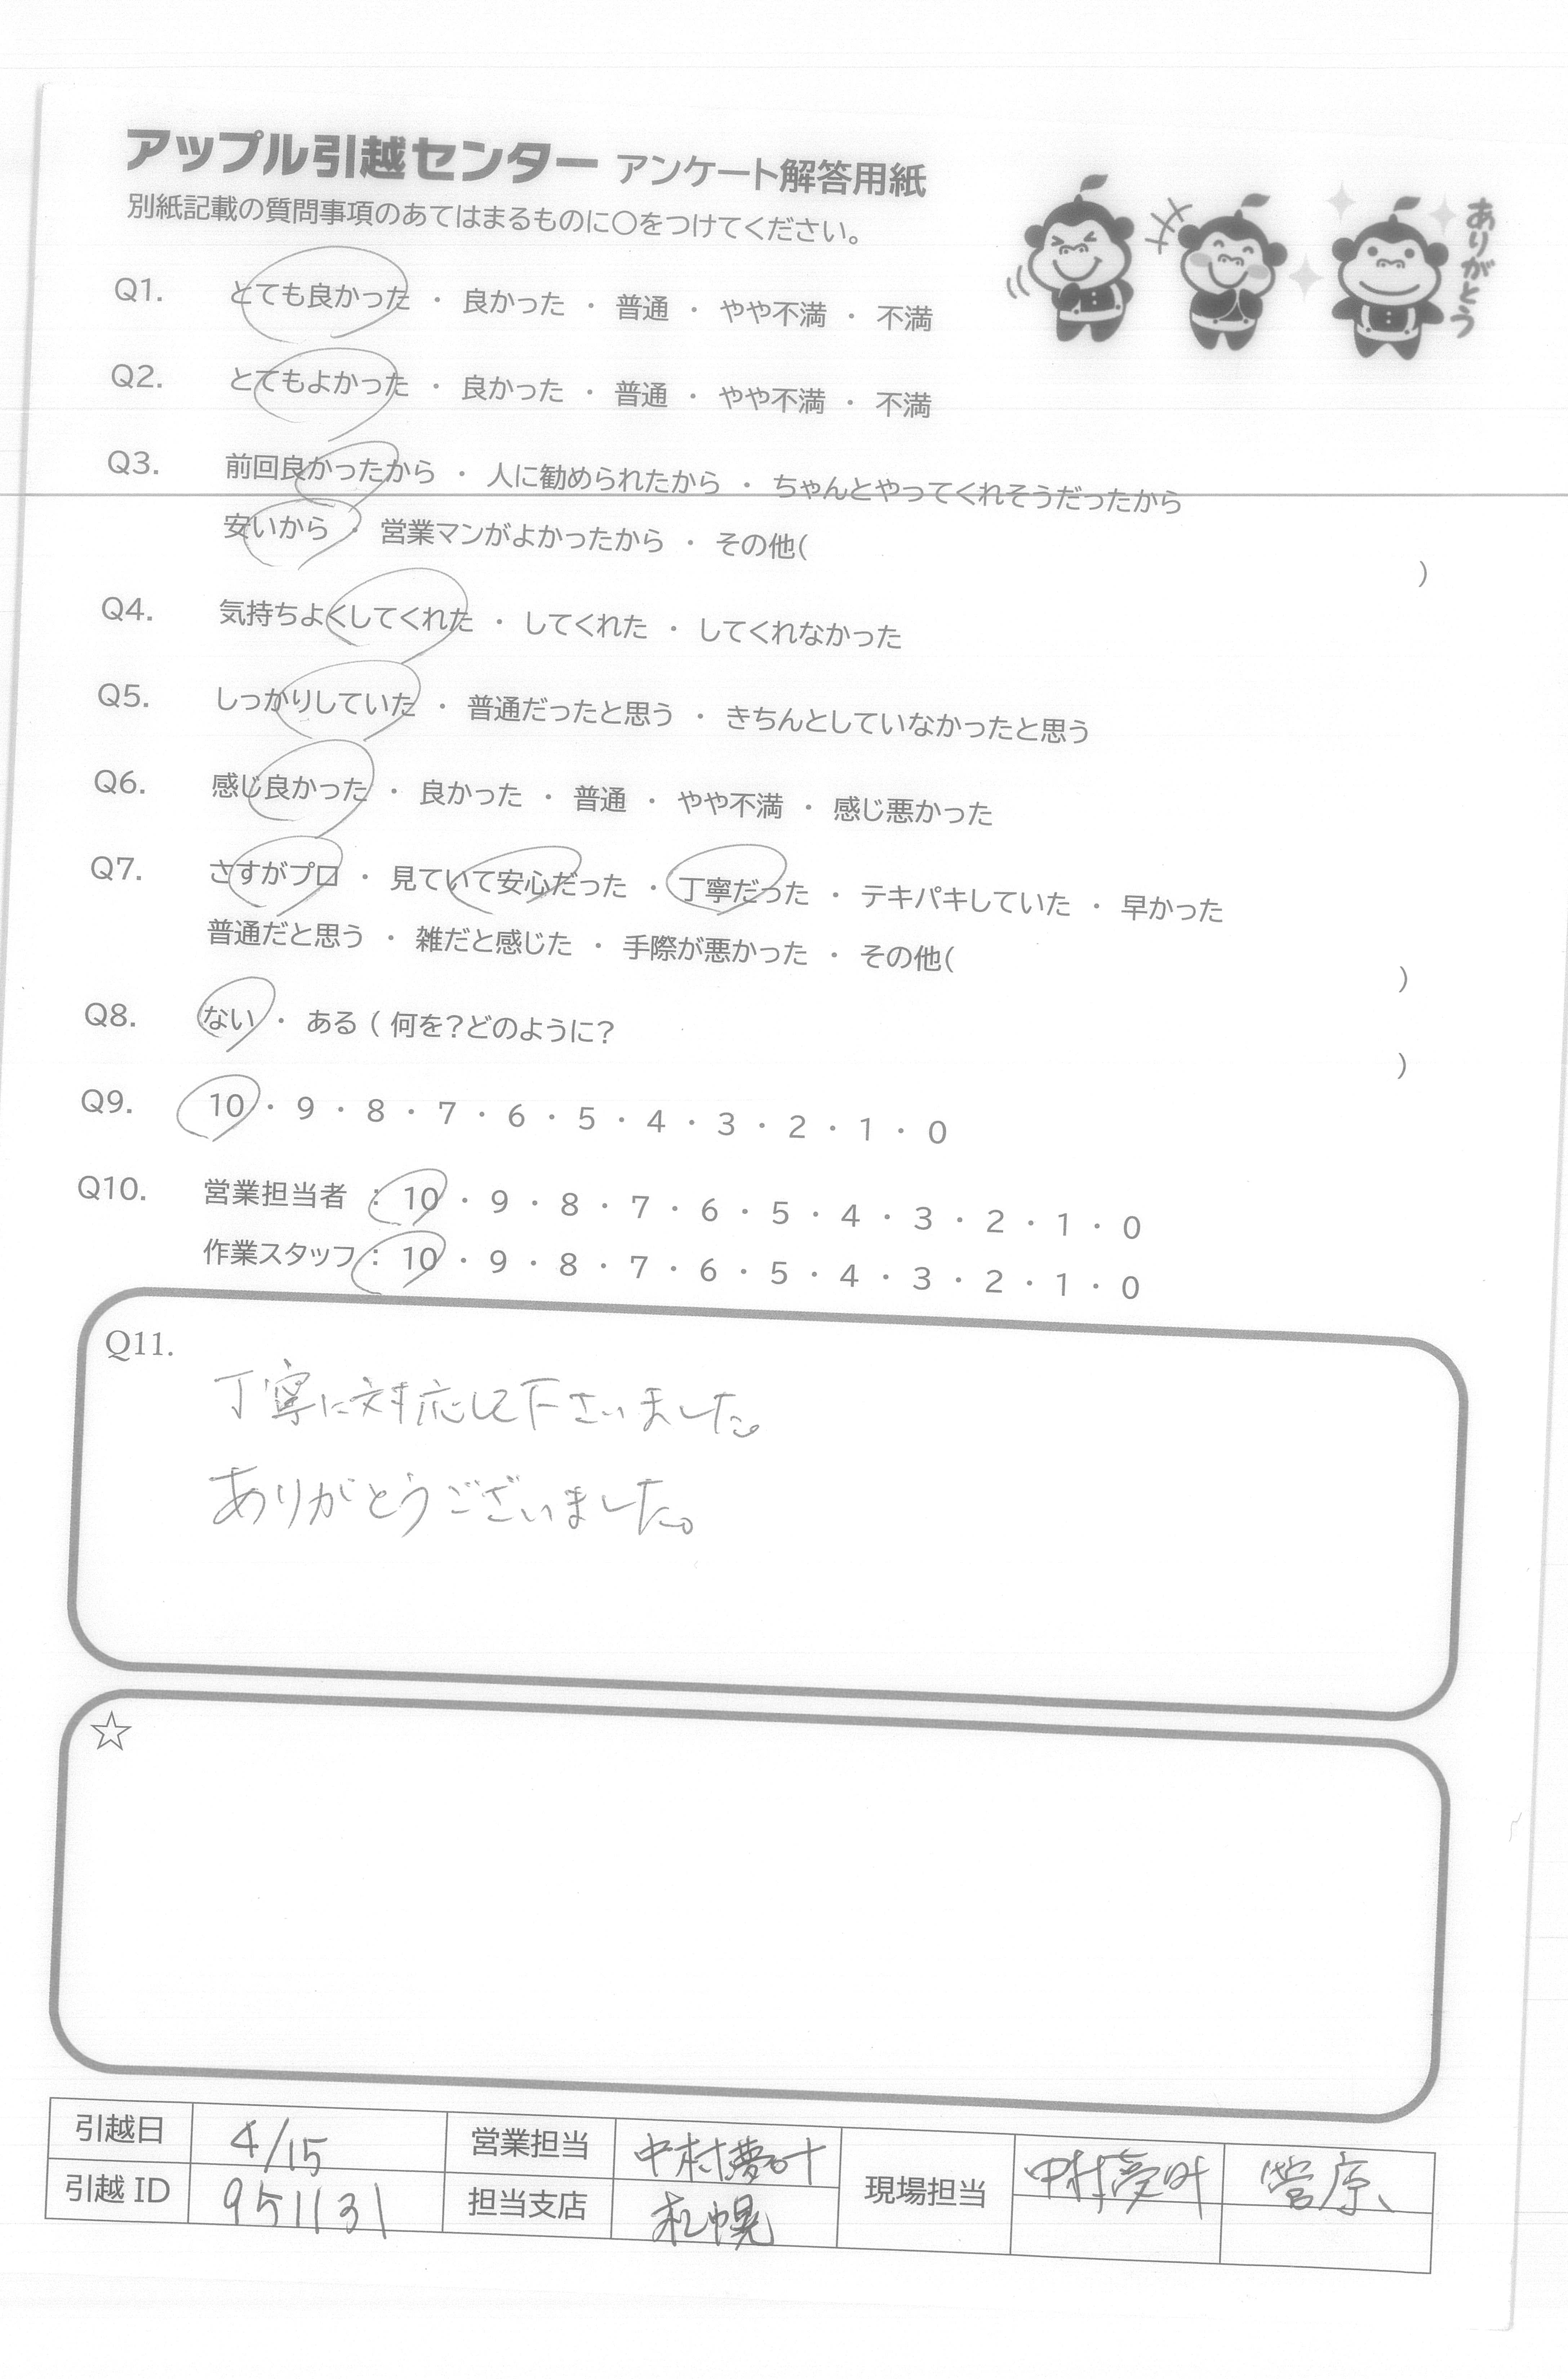 アップル引越センター アンケート解答用紙
別紙記載の質問事項のあてはまるものに○をつけてください。
ありがとう
Q1. とても良かった ・ 良かった ・ 普通 ・ やや不満 ・ 不満
Q2. とてもよかった ・ 良かった ・ 普通 ・ やや不満 ・ 不満
Q3. 前回良かったから ・ 人に勧められたから ・ ちゃんとやってくれそうだったから
安いから ・ 営業マンがよかったから ・ その他( )
Q4. 気持ちよくしてくれた ・ してくれた ・ してくれなかった
Q5. しっかりしていた ・ 普通だったと思う ・ きちんとしていなかったと思う
Q6. 感じ良かった ・ 良かった ・ 普通 ・ やや不満 ・ 感じ悪かった
Q7. さすがプロ ・ 見ていて安心だった ・ 丁寧だった ・ テキパキしていた ・ 早かった
普通だと思う ・ 雑だと感じた ・ 手際が悪かった ・ その他( )
Q8. ない ・ ある ( 何を?どのように? )
Q9. 10 ・ 9 ・ 8 ・ 7 ・ 6 ・ 5 ・ 4 ・ 3 ・ 2 ・ 1 ・ 0
Q10. 営業担当者 : 10 ・ 9 ・ 8 ・ 7 ・ 6 ・ 5 ・ 4 ・ 3 ・ 2 ・ 1 ・ 0
作業スタッフ : 10 ・ 9 ・ 8 ・ 7 ・ 6 ・ 5 ・ 4 ・ 3 ・ 2 ・ 1 ・ 0
Q11.
丁寧に対応して下さいました。
ありがとうございました。
☆
引越日 4/15 営業担当 中村夢叶 現場担当 中村夢叶 菅原
引越ID 951131 担当支店 札幌